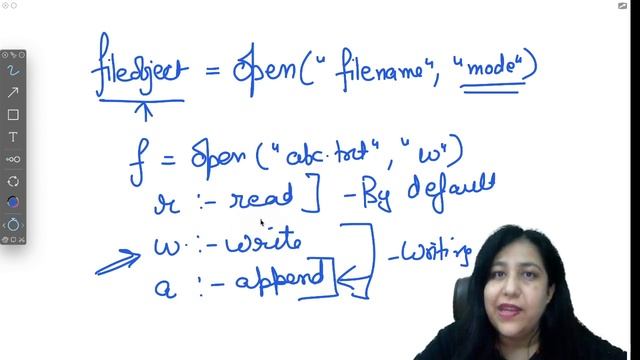 fileobject = open("filename", "mode")
f = open("abc.txt", "w")
r :- read ] - By default
w :- write
a :- append
- Writing
T